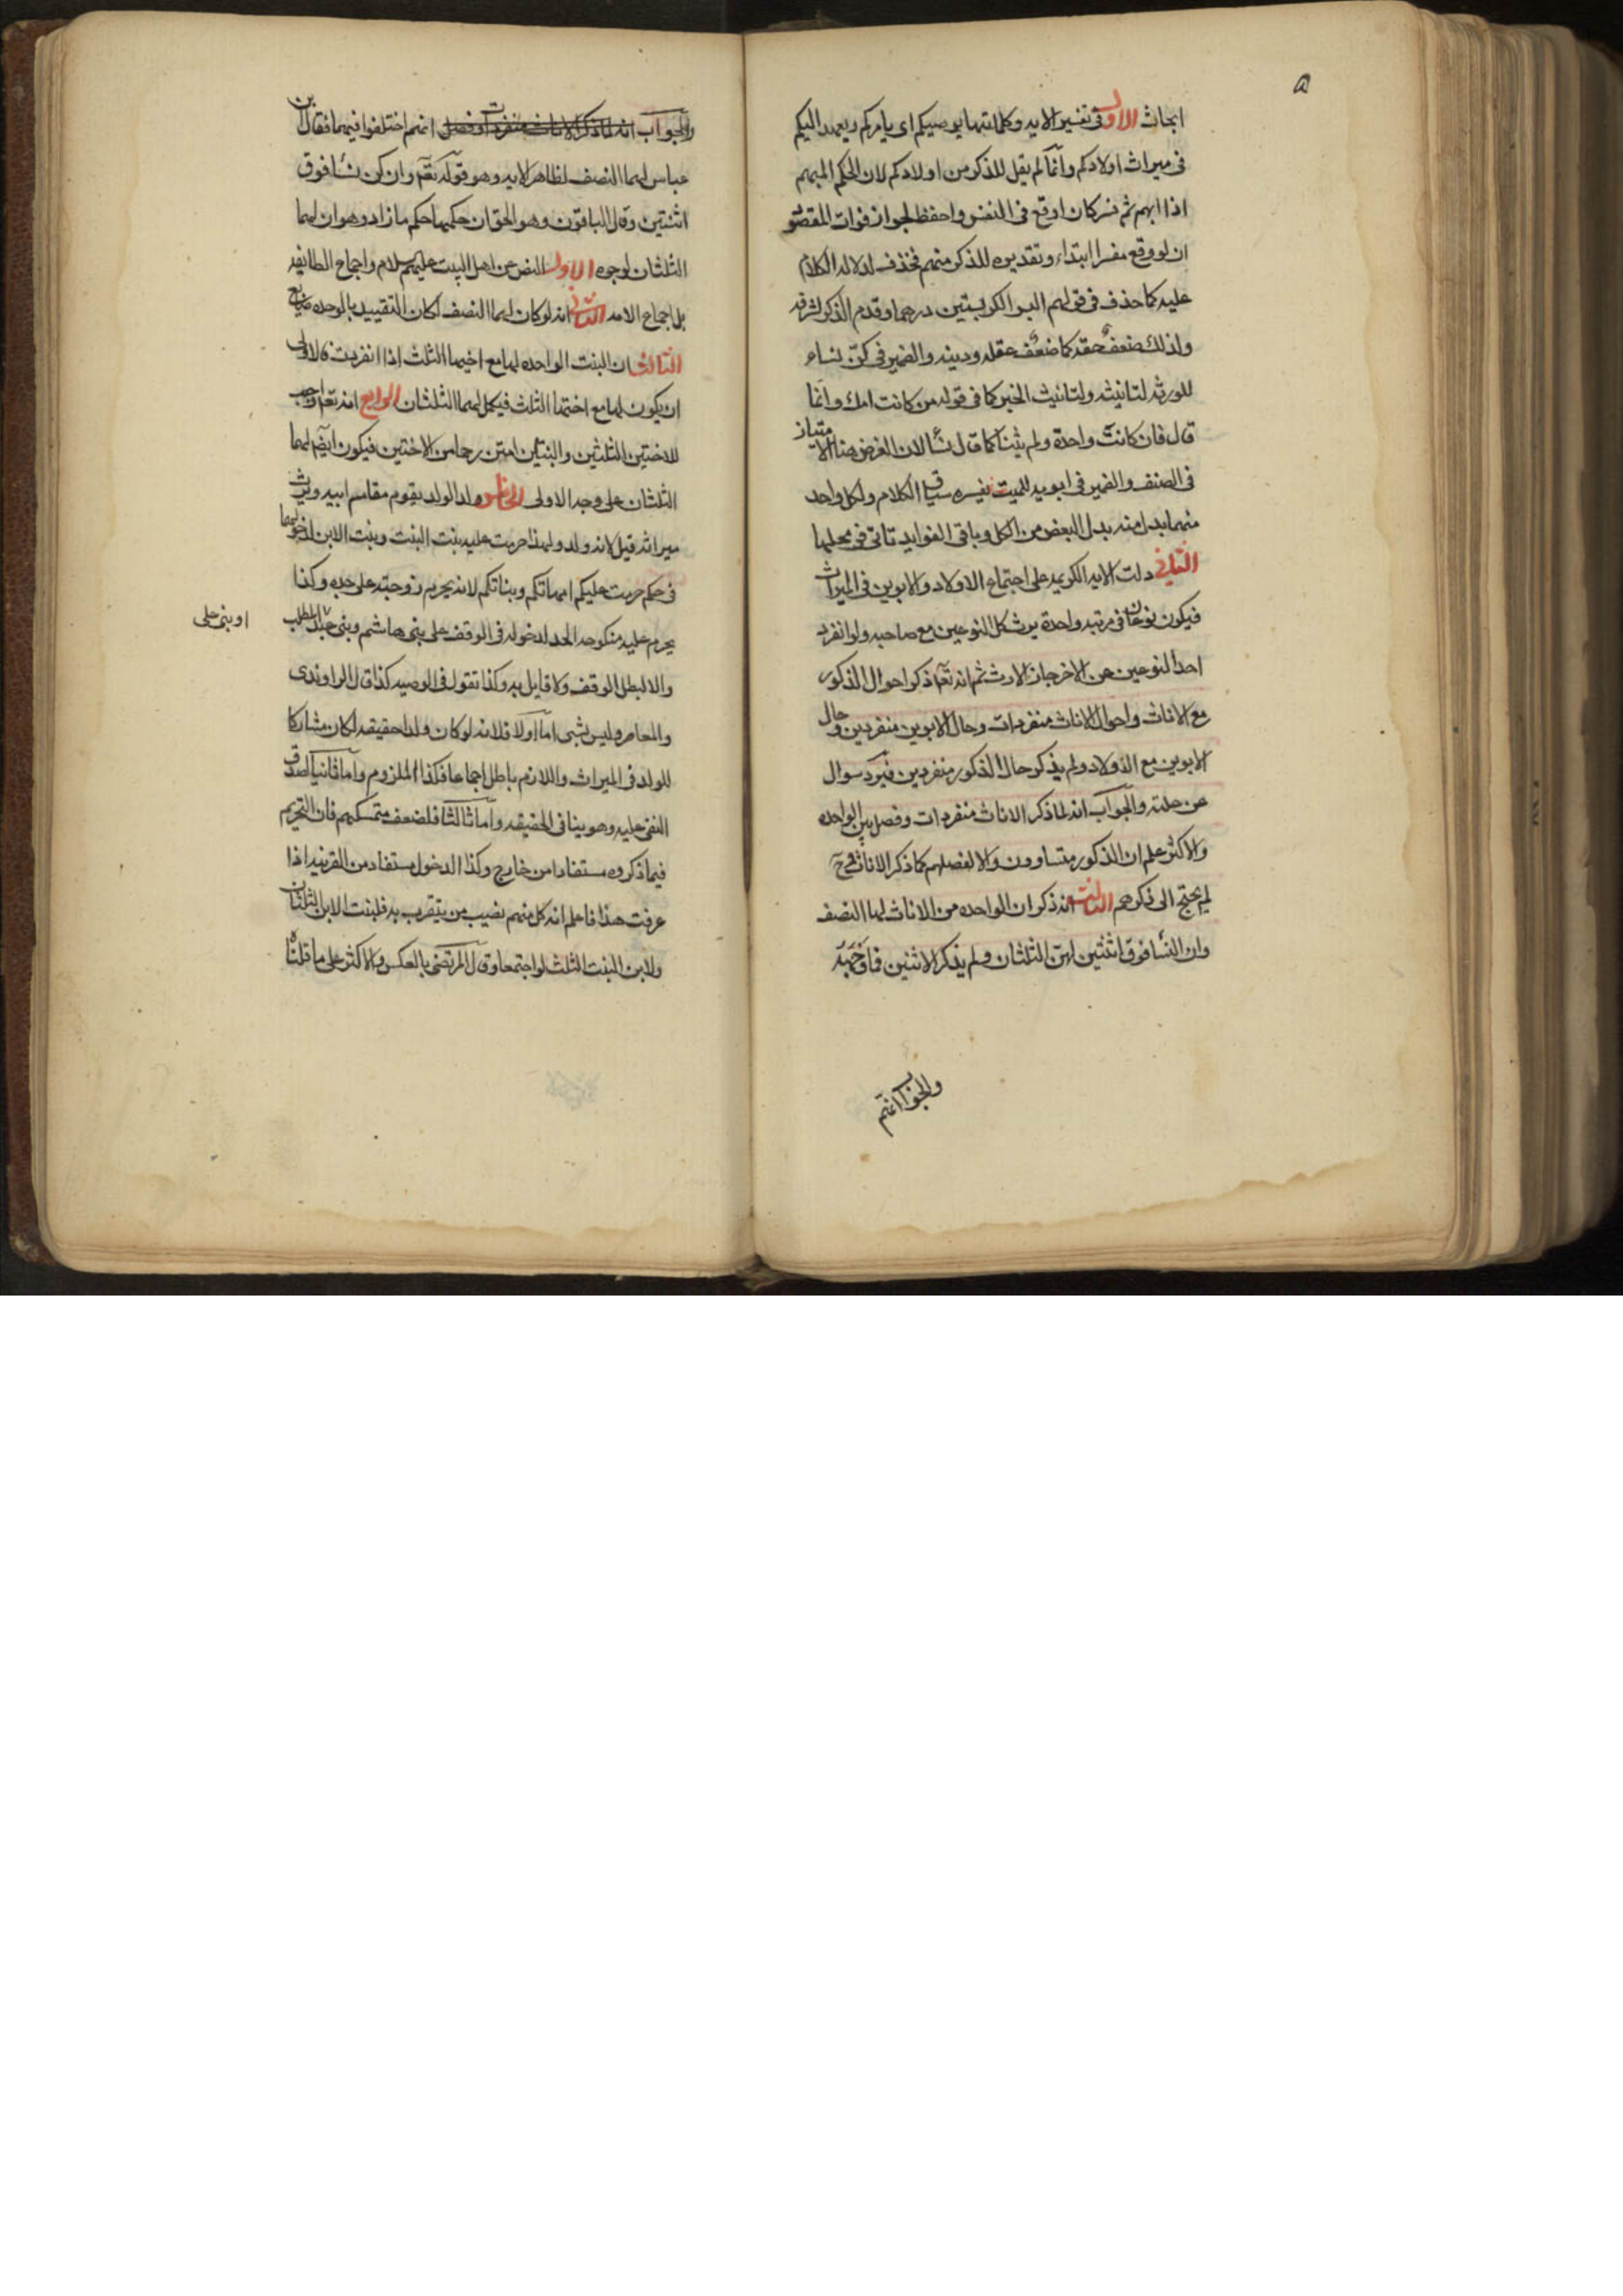 ابحاث الاول فى تفسير الايه وكلماتها يوصيكم اى يامركم ويعهد اليكم
فى ميراث اولادكم وانما لم يقل للذكر من اولادكم لان الحكم المبهم
اذا ابهم ثم فسر كان اوقع فى النفس واحفظ لجواز فوات المقصود
ان لو وقع مفسرا ابتداء وتقديره للذكر منهم فحذف لدلاله الكلام
عليه كما حذف فى قولهم البر الكر بستين درهما وقدم الذكر لشرفه
ولذلك ضعف حقه كما ضعف عقله ودينه والضمير فى كن نساء
للورثه لتانيثه ولتانيث الخبر كما فى قوله من كانت امك وانما
قال فان كانت واحدة ولم يثنها كما قال نسآ لان الغرض هنا الامتياز
فى الصنف والضمير فى ابويه للميت يفسره سياق الكلام ولكل واحد
منهما بدل منه بدل البعض من الكل وباقى الفوايد تاتى فى محلها
الثانى دلت الايه الكريمه على اجتماع الاولاد والابوين فى الميراث
فيكون نوعان فى مرتبه واحدة يرث كل النوعين مع صاحبه ولو انفرد
احد النوعين عن الاخر جاز الارث ثم انه تعم ذكر احوال الذكور
مع الاناث واحوال الاناث منفردات وحال الابوين منفردين وحال
الابوين مع الاولاد ولم يذكر حال الذكور منفردين فيرد سوال
عن علته والجواب انه لما ذكر الاناث منفردات وفصل بين الواحده
والاكثر علم ان الذكور متساوون والا لفصلهم كما ذكر الاناث فح
لم يحتج الى ذكرهم الثالث انه ذكر ان الواحده من الاناث لها النصف
وان النسآ فوق اثنتين لهن الثلثان ولم يذكر الاثنين فما وجهه
والجواب انهم
والجواب انه لما ذكر الاناث منفردات وفصل انهم اختلفوا فيهما فقال ابن
عباس لهما النصف لظاهر الايه وهو قوله تعم وان كن نسآ فوق
اثنتين وقال الباقون وهو الحق ان حكمهما حكم ما زاد وهو ان لهما
الثلثان لوجوه الاول النص عن اهل البيت عليهم سلام واجماع الطايفه
بل اجماع الامه الثانى انه لو كان لهما النصف لكان التقييد بالوحده ضايع
الثالث ان البنت الواحده لها مع اخيها الثلث اذا انفردت فالاولى
ان يكون لها مع اختها الثلث فيكمل لهما الثلثان الرابع انه تعم اوجب
للاختين الثلثين والبنتان امتن رحما من الاختين فيكون ايضم لهما
الثلثان على وجه الاولى الخامس ولد الولد يقوم مقام ابيه ويرث
ميراثه قيل لانه ولد ولهذا حرمت عليه بنت البنت وبنت الابن لدخولهما
فى حكم حرمت عليكم امهاتكم وبناتكم لانه يحرم زوجته على جده وكذا
يحرم عليه منكوحه الجد لدخوله فى الوقف على بنى هاشم وبنى عبد المطلب
او بنى على
والا لبطل الوقف ولا قايل به وكذا تقول فى الوصيه كذا قال الراوندى
والمعاصر وليس بشى اما اولا فلانه لو كان ولدا حقيقه لكان مشاركا
للولد فى الميراث واللازم باطل اجماعا فكذا الملزوم واما ثانيا لصدق
النفى عليه وهو ينافى الحقيقه واما ثالثا فلضعف متمسكهم فان التحريم
فيما ذكروه مستفاد من خارج وكذا الدخول مستفاد من القرينه اذا
عرفت هذا فاعلم انه كل منهم نصيب من يتقرب به فلبنت الابن الثلثان
ولابن البنت الثلث لو اجتمعا وقال المرتضى بالعكس والاكثر على ما قلناه